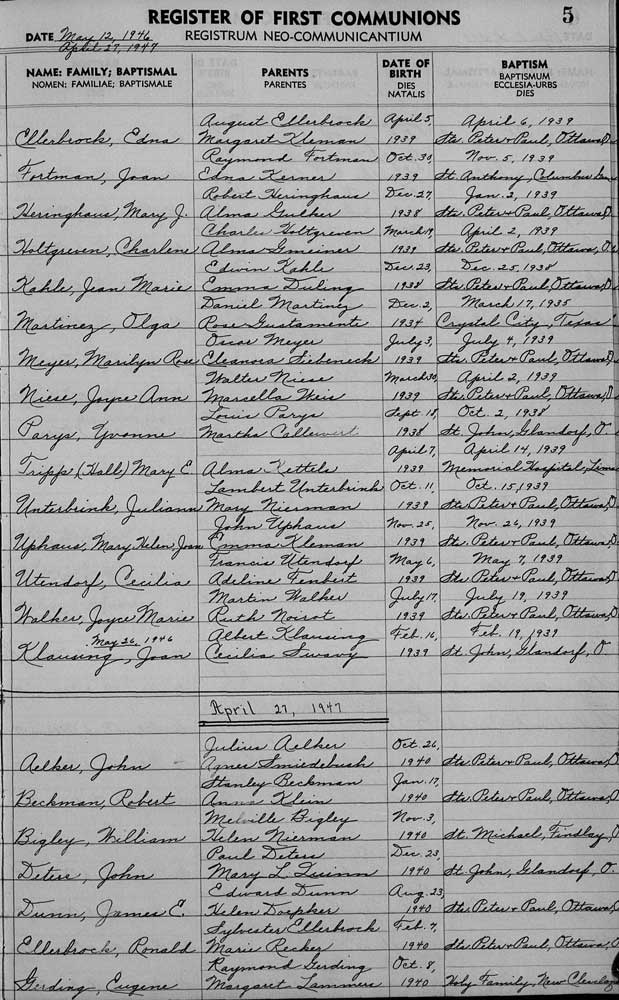 REGISTER OF FIRST COMMUNIONS 5
DATE May 12, 1946 REGISTRUM NEO-COMMUNICANTIUM
April 27, 1947
NAME: FAMILY; BAPTISMAL PARENTS DATE OF BIRTH BAPTISM
NOMEN: FAMILIAE; BAPTISMALE PARENTES DIES NATALIS BAPTISMUM ECCLESIA-URBS DIES
August Ellerbrock April 5, April 6, 1939
Ellerbrock, Edna Margaret Kleman 1939 Sts. Peter & Paul, Ottawa, O.
Raymond Fortman Oct. 30, Nov. 5, 1939
Fortman, Joan Edna Kerner 1939 St. Anthony, Columbus
Robert Heringhaus Dec. 27, Jan. 2, 1939
Heringhaus, Mary J. Alma Gulker 1938 Sts. Peter & Paul, Ottawa, O.
Charles Holtgreven March 19, April 2, 1939
Holtgreven, Charlene Alma 1939 Sts. Peter & Paul, Ottawa, O.
Edwin Kahle Dec. 23, Dec. 25, 1938
Kahle, Jean Marie Emma Duling 1938 Sts. Peter & Paul, Ottawa, O.
Daniel Martinez Dec. 2, March 17, 1935
Martinez, Olga Rose Gustamente 1934 Crystal City, Texas
Oscar Meyer July 3, July 4, 1939
Meyer, Marilyn Rose Eleanora Siebeneck 1939 Sts. Peter & Paul, Ottawa, O.
Walter Niese March 30, April 2, 1939
Niese, Joyce Ann Marcella Weis 1939 Sts. Peter & Paul, Ottawa, O.
Louis Parys Sept. 18, Oct. 2, 1938
Parys, Yvonne Martha Callewert 1938 St. John, Glandorf, O.
April 7, April 14, 1939
Tripp (Halb) Mary E. Alma Kettels 1939 Memorial Hospital, Lima
Lambert Unterbrink Oct. 11, Oct. 15, 1939
Unterbrink, Juliann Mary Nierman 1939 Sts. Peter & Paul, Ottawa, O.
John Uphaus Nov. 25, Nov. 26, 1939
Uphaus, Mary Helen, Jean Emma Kleman 1939 Sts. Peter & Paul, Ottawa, O.
Francis Utendorf May 6, May 7, 1939
Utendorf, Cecilia Adeline Fenbert 1939 Sts. Peter & Paul, Ottawa, O.
Martin Walker July 17, July 19, 1939
Walker, Joyce Marie Ruth Noirot 1939 Sts. Peter & Paul, Ottawa, O.
May 26, 1946 Albert Klausing Feb. 16, Feb. 19, 1939
Klausing, Joan Cecilia Swavy 1939 St. John, Glandorf, O.
April 27, 1947
Julius Aelker Oct. 26,
Aelker, John Agnes Smiedebush 1940 Sts. Peter & Paul, Ottawa, O.
Stanley Beckman Jan. 17,
Beckman, Robert Anna Klein 1940 Sts. Peter & Paul, Ottawa, O.
Melville Bigley Nov. 3,
Bigley, William Helen Nierman 1940 St. Michael, Findlay, O.
Paul Deters Dec. 23,
Deters, John Mary L. Quinn 1940 St. John, Glandorf, O.
Edward Dunn Aug. 23,
Dunn, James E. Helen Doepker 1940 Sts. Peter & Paul, Ottawa, O.
Sylvester Ellerbrock Feb. 7,
Ellerbrock, Ronald Marie Recker 1940 Sts. Peter & Paul, Ottawa, O.
Raymond Gerding Oct. 8,
Gerding, Eugene Margaret Lammers 1940 Holy Family, New Cleveland